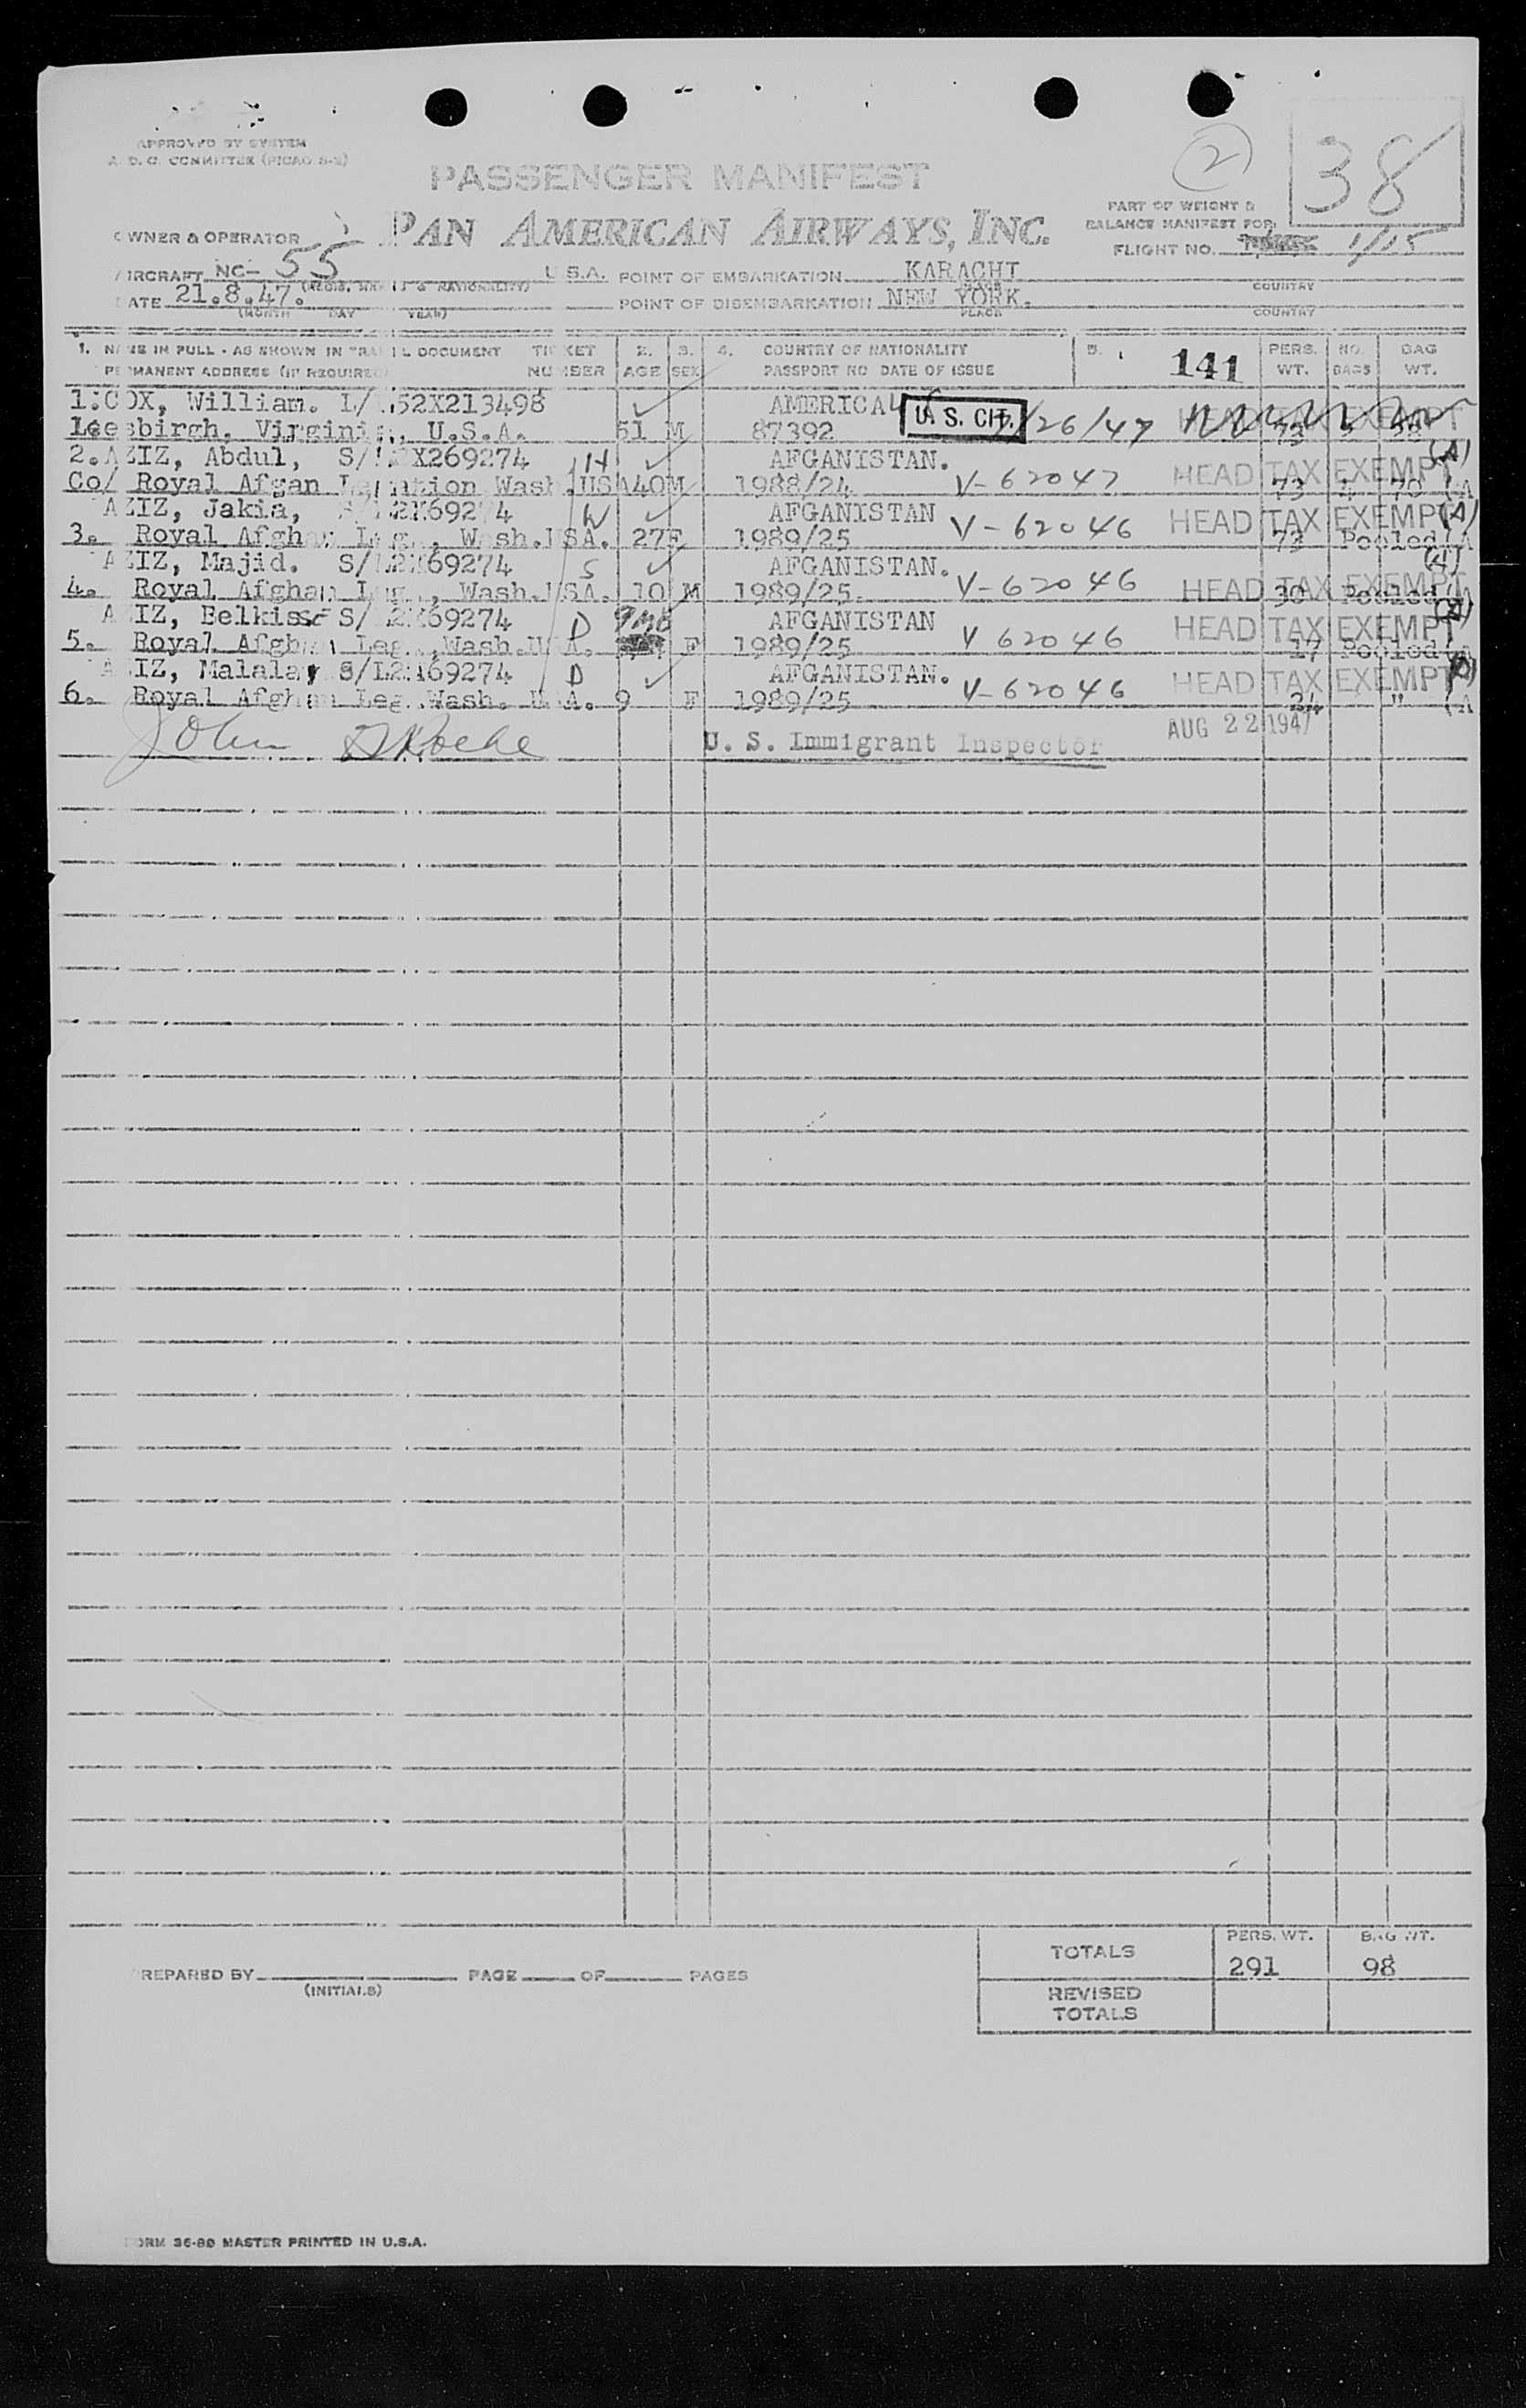 APPROVED BY SYSTEM
A.D.C. COMMITTEE (PICAO S-2)
2
38
PASSENGER MANIFEST
PART OF WEIGHT &
BALANCE MANIFEST FOR:
OWNER & OPERATOR PAN AMERICAN AIRWAYS, INC.
FLIGHT NO. 1/15
AIRCRAFT NC- 55 U.S.A. POINT OF EMBARKATION KARACHI
(REGIS. MARKS & NATIONALITY) PLACE COUNTRY
DATE 21.8.47. POINT OF DISEMBARKATION NEW YORK.
(MONTH DAY YEAR) PLACE COUNTRY
1. NAME IN FULL - AS SHOWN IN TRAVEL DOCUMENT TICKET 2. 3. 4. COUNTRY OF NATIONALITY 5. 141 PERS. NO. BAG
PERMANENT ADDRESS (IF REQUIRED) NUMBER AGE SEX PASSPORT NO DATE OF ISSUE WT. BAGS WT.
1.COX, William. L/ 52X213498 AMERICA U. S. CIT. HEAD TAX EXEMPT
Leesbirgh, Virginia, U.S.A. 51 M 87392 /26/47 73
2.AZIZ, Abdul, S/ X269274 H AFGANISTAN. HEAD TAX EXEMPT (A)
Co/ Royal Afgan Legation Wash.USA 40 M 1988/24 V-62047 73 4 70 (A
AZIZ, Jakia, 69274 W AFGANISTAN HEAD TAX EXEMPT (A)
3. Royal Afghan Leg., Wash.USA. 27 F 1989/25 V-62046 73 Pooled (A
AZIZ, Majid. S/ 69274 S AFGANISTAN. (A)
4. Royal Afghan Leg., Wash.USA. 10 M 1989/25. V-62046 HEAD TAX EXEMPT 30 Pooled (A
AZIZ, Belkisse S/ 69274 D AFGANISTAN HEAD TAX EXEMPT (A)
5. Royal Afghan Leg.,Wash.USA. F 1989/25 V 62046 17 Pooled (A
AZIZ, Malalay S/L2 69274 D AFGANISTAN. HEAD TAX EXEMPT
6. Royal Afghan Leg.Wash. USA. 9 F 1989/25 V-62046 24 " (A
AUG 22 1947
John D Roche U. S. Immigrant Inspector
TOTALS PERS. WT. 291 BAG WT. 98
PREPARED BY (INITIALS) PAGE OF PAGES
REVISED
TOTALS
FORM 36-80 MASTER PRINTED IN U.S.A.